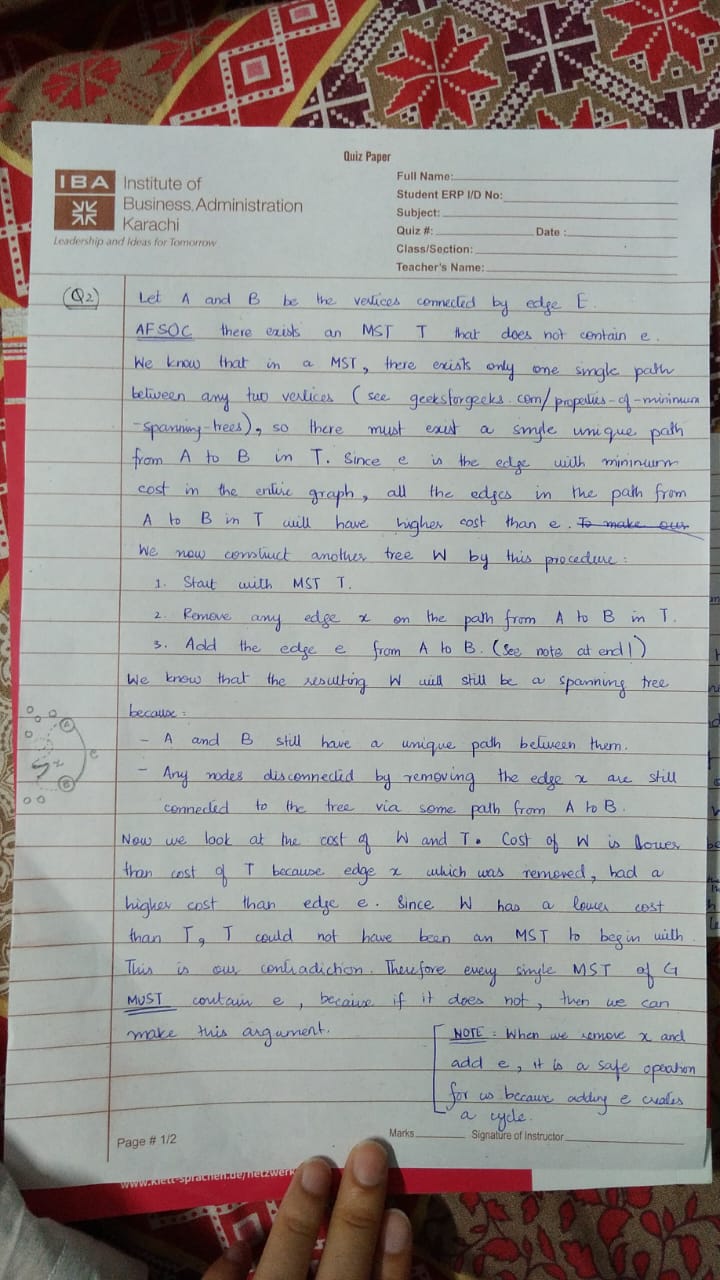 Quiz Paper
IBA Institute of
Business Administration
Karachi
Leadership and Ideas for Tomorrow
Full Name:
Student ERP I/D No:
Subject:
Quiz #: Date :
Class/Section:
Teacher's Name:
(Q2) Let A and B be the vertices connected by edge E.
AFSOC there exists an MST T that does not contain e.
We know that in a MST, there exists only one single path
between any two vertices (see geeksforgeeks.com/properties-of-minimum
-spanning-trees), so there must exist a single unique path
from A to B in T. Since e is the edge with minimum
cost in the entire graph, all the edges in the path from
A to B in T will have higher cost than e. To make our
We now construct another tree W by this procedure:
1. Start with MST T.
2. Remove any edge x on the path from A to B in T.
3. Add the edge e from A to B. (See note at end!)
We know that the resulting W will still be a spanning tree
because:
- A and B still have a unique path between them.
- Any nodes disconnected by removing the edge x are still
connected to the tree via some path from A to B.
A
x
e
B
Now we look at the cost of W and T. Cost of W is lower
than cost of T because edge x which was removed, had a
higher cost than edge e. Since W has a lower cost
than T, T could not have been an MST to begin with.
This is our contradiction. Therefore every single MST of G
MUST contain e, because if it does not, then we can
make this argument.
NOTE: When we remove x and
add e, it is a safe operation
for us because adding e creates
a cycle.
Page # 1/2
Marks Signature of Instructor